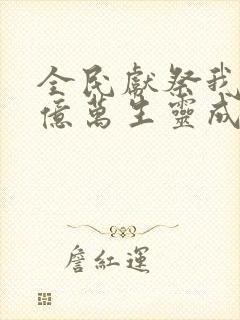 全民獻祭我
億萬生靈成
詹紅運